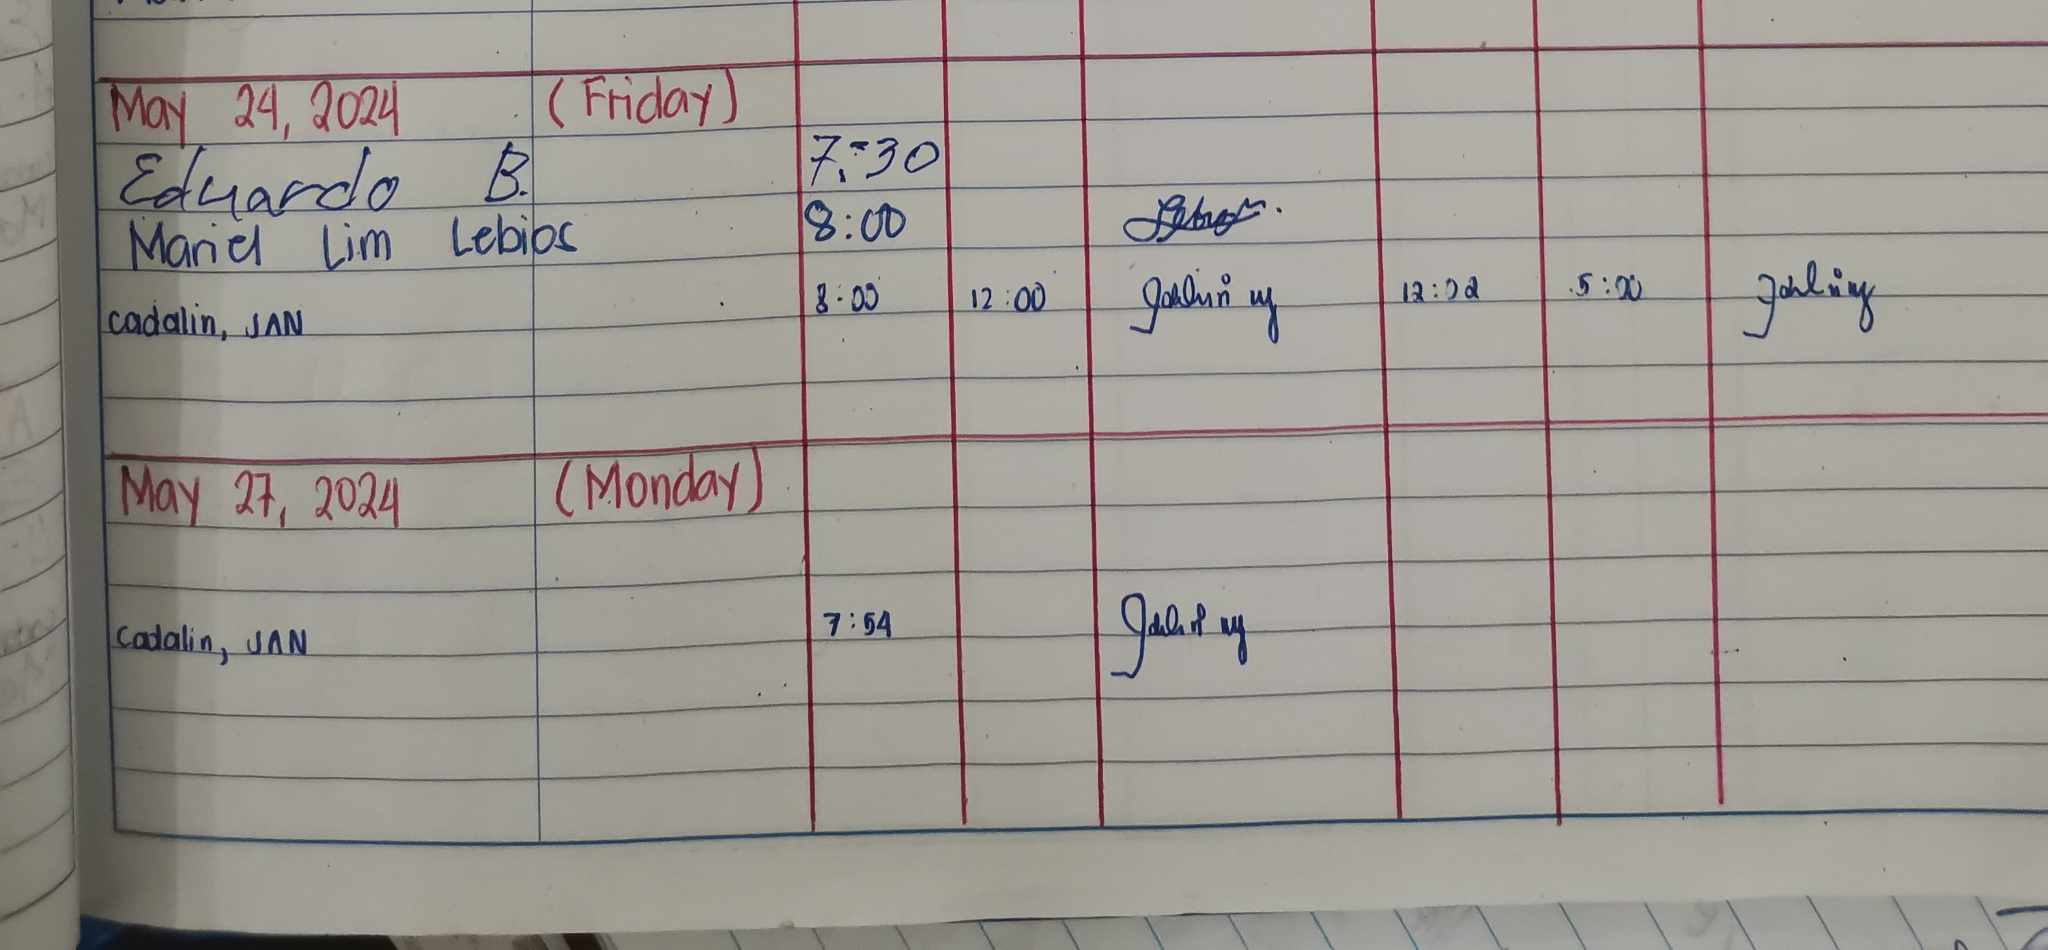 May 24, 2024 (Friday)
Eduardo B. 7:30
Mariel Lim Lebios 8:00
cadalin, JAN 8:00 12:00 12:02 5:00
May 27, 2024 (Monday)
cadalin, JAN 7:54